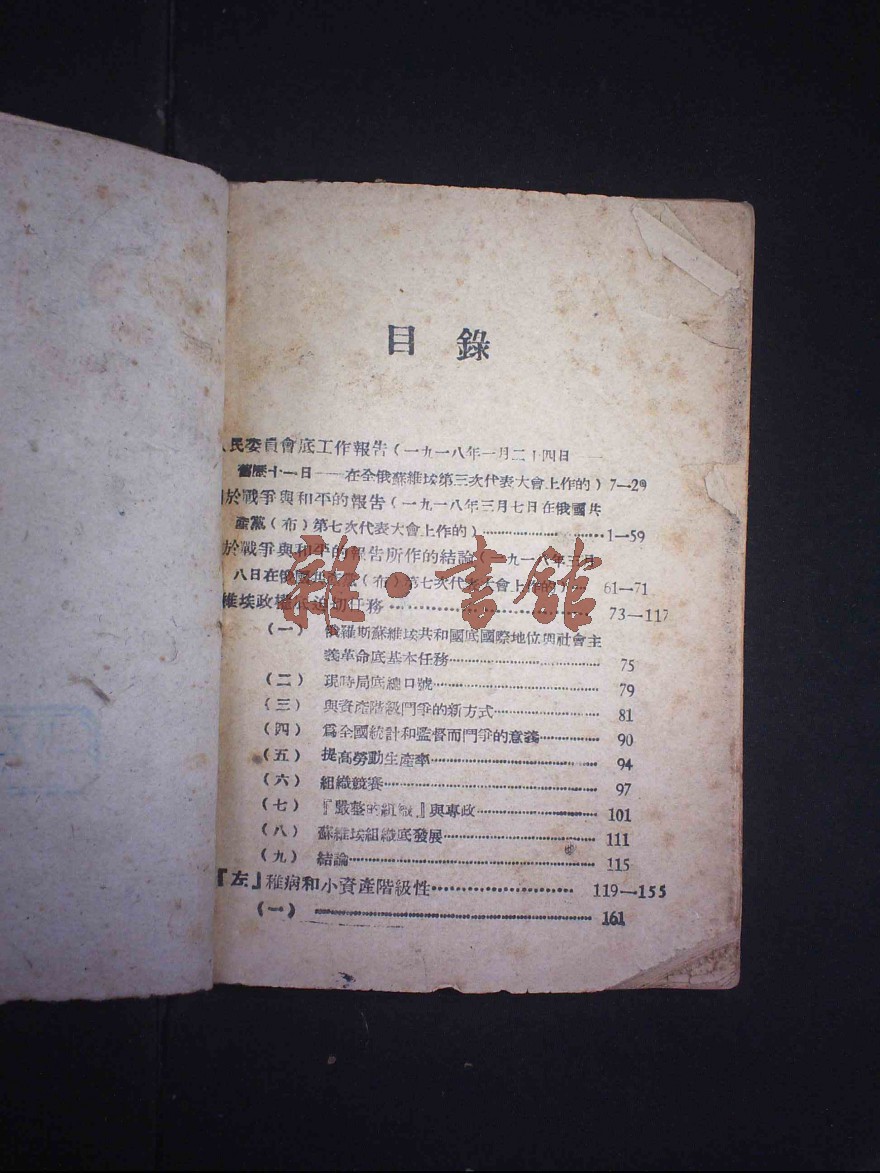 目錄
民委員會底工作報告(一九一八年一月二十四日——
舊歷十一日——在全俄蘇維埃第三次代表大會上作的)7—29
於戰爭與和平的報告(一九一八年三月七日在俄國共
產黨(布)第七次代表大會上作的)…………1—59
於戰爭與和平的報告所作的結論(一九一八年三月
八日在俄國共產黨(布)第七次代表大會上作的)…61—71
維埃政權底迫切任務…………73—117
(一) 俄羅斯蘇維埃共和國底國際地位與社會主
義革命底基本任務…………75
(二) 現時局底總口號…………79
(三) 與資產階級鬥爭的新方式…………81
(四) 為全國統計和監督而鬥爭的意義…………90
(五) 提高勞動生產率…………94
(六) 組織競賽…………97
(七) 『嚴整的組織』與專政…………101
(八) 蘇維埃組織底發展…………111
(九) 結論…………115
『左』稚病和小資產階級性…………119—155
(一) …………161
雜·書館